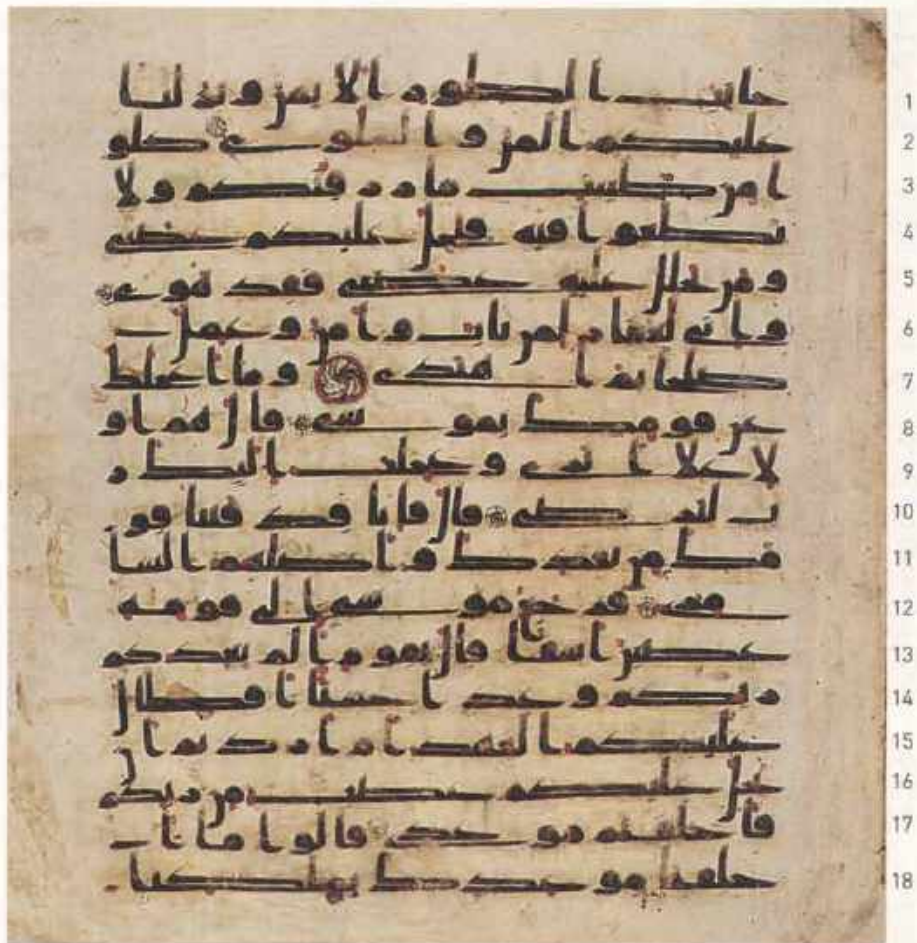 جانب الطور الايمن ونزلنا
عليكم المن والسلوى كلو
ا من طيبت ما رزقنكم ولا
تطغوا فيه فيحل عليكم غضبي
ومن يحلل عليه غضبي فقد هوى
واني لغفار لمن تاب وامن وعمل
صلحا ثم اهتدى وما اعجلك
عن قومك يموسى قال هم او
لا على اثري وعجلت اليك ر
ب لترضى قال فانا قد فتنا قو
مك من بعدك واضلهم السا
مري فرجع موسى الى قومه
غضبن اسفا قال يقوم الم يعدكم
ربكم وعدا حسنا افطال
عليكم العهد ام اردتم ان
يحل عليكم غضب من ربكم
فاخلفتم موعدي قالوا ما ا
خلفنا موعدك بملكنا
1
2
3
4
5
6
7
8
9
10
11
12
13
14
15
16
17
18